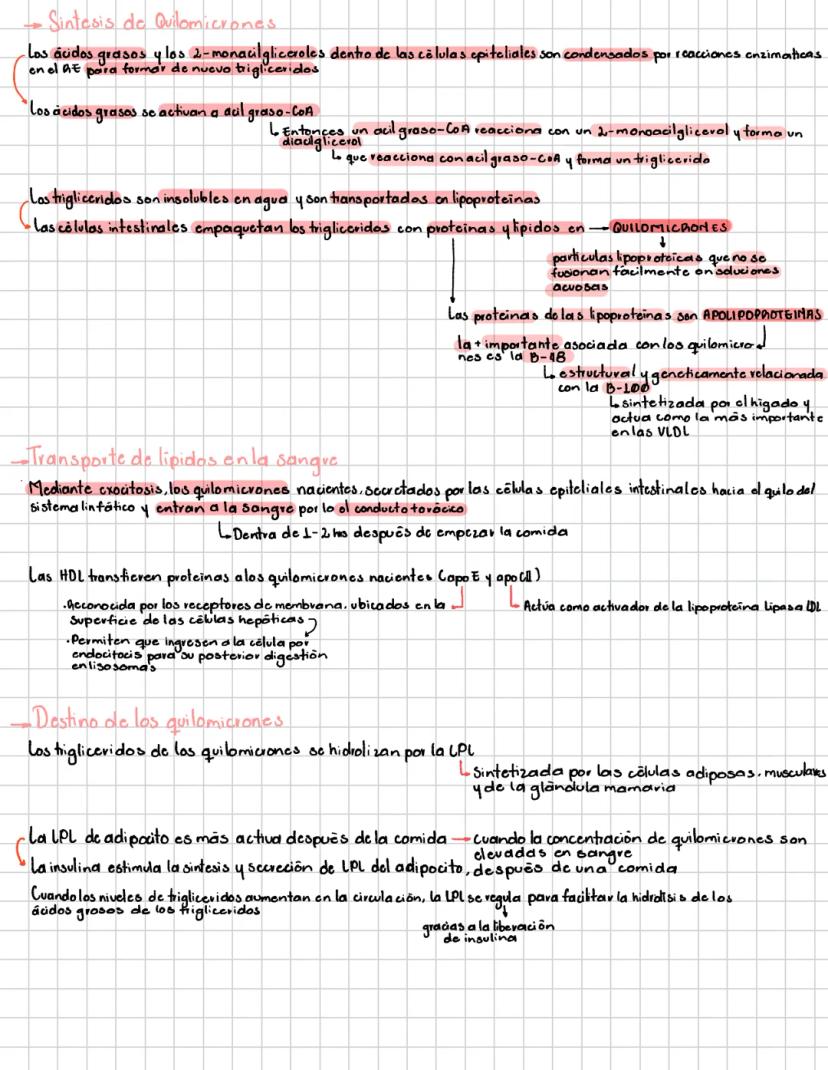 → Síntesis de Quilomicrones
Los ácidos grasos y los 2-monacilgliceroles dentro de las células epiteliales son condensados por reacciones enzimaticas
en el RE para formar de nuevo trigliceridos
Los ácidos grasos se activan a acil graso-CoA
Entonces un acil graso-CoA reacciona con un 2-monoacilglicerol y forma un
diacilglicerol
que reacciona con acil graso-CoA y forma un triglicerido
Los trigliceridos son insolubles en agua y son transportados en lipoproteínas
Las células intestinales empaquetan los trigliceridos con proteínas y lípidos en → QUILOMICRONES
partículas lipoproteícas que no se
fusionan fácilmente en soluciones
acuosas
Las proteínas de las lipoproteínas son APOLIPOPROTEINAS
la + importante asociada con los quilomicro-
nes es la B-48
estructural y geneticamente relacionada
con la B-100
sintetizada por el hígado y
actua como la más importante
en las VLDL
→ Transporte de lípidos en la sangre
Mediante exocitosis, los quilomicrones nacientes, secretados por las células epiteliales intestinales hacia el quilo del
sistema linfático y entran a la sangre por lo el conducto torácico
Dentra de 1-2 hrs después de empezar la comida
Las HDL transfieren proteínas a los quilomicrones nacientes (apo E y apo CII)
·Reconocida por los receptores de membrana, ubicados en la
superficie de las células hepáticas
Actúa como activador de la lipoproteína lipasa LDL
·Permiten que ingresen a la célula por
endocitocis para su posterior digestión
en lisosomas
→ Destino de los quilomicrones
Los trigliceridos de los quilomicrones se hidrolizan por la LPL
Sintetizada por las células adiposas, musculares
y de la glándula mamaria
La LPL de adipocito es más activa después de la comida → cuando la concentración de quilomicrones son
elevadas en sangre
La insulina estimula la síntesis y secreción de LPL del adipocito, después de una comida
Cuando los niveles de trigliceridos aumentan en la circulación, la LPL se regula para facilitar la hidrólisis de los
ácidos grasos de los trigliceridos
gracias a la liberación
de insulina